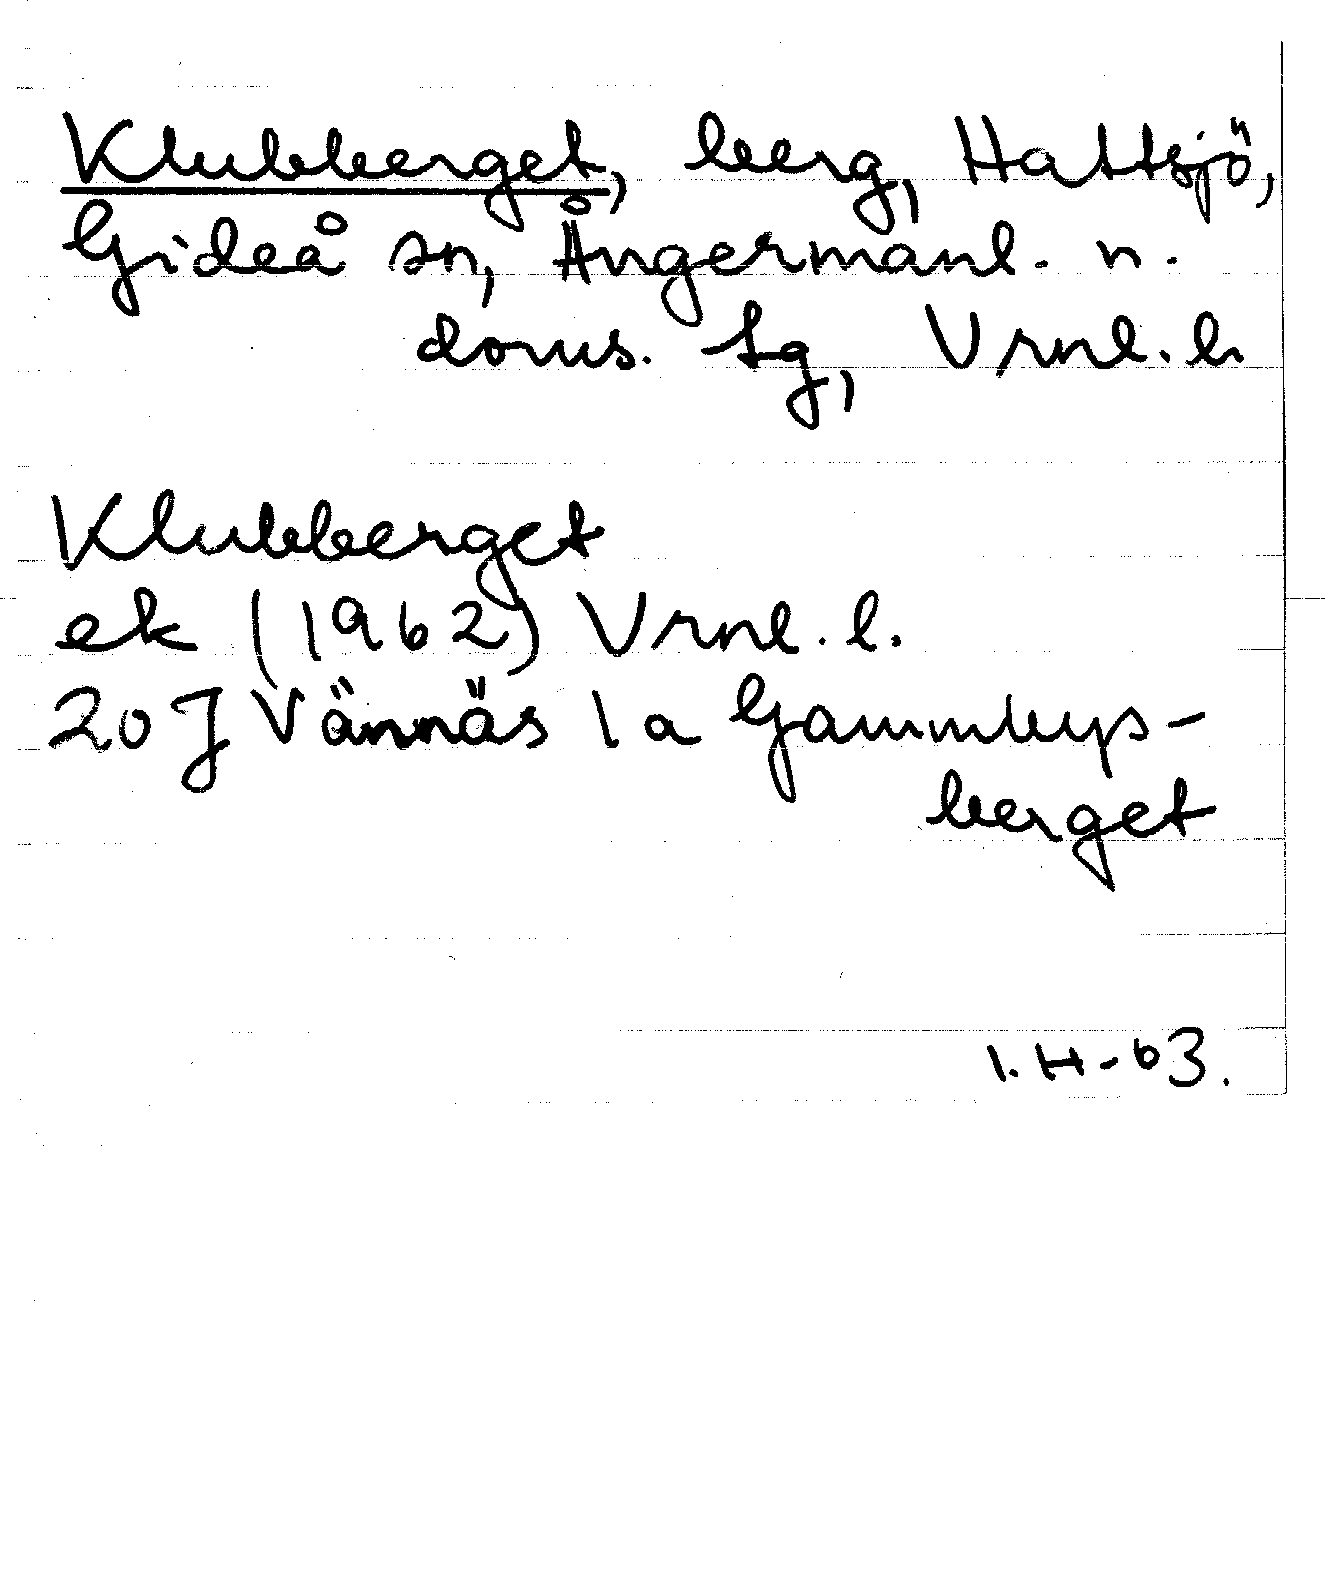 Klubberget, berg, Hattsjö,
Gideå sn, Ångermanl. n.
doms. tg, Vrnl. l.
Klubberget
ek (1962) Vrnl. l.
20 J Vännäs 1 a Gammbys-
berget
I. H-63.